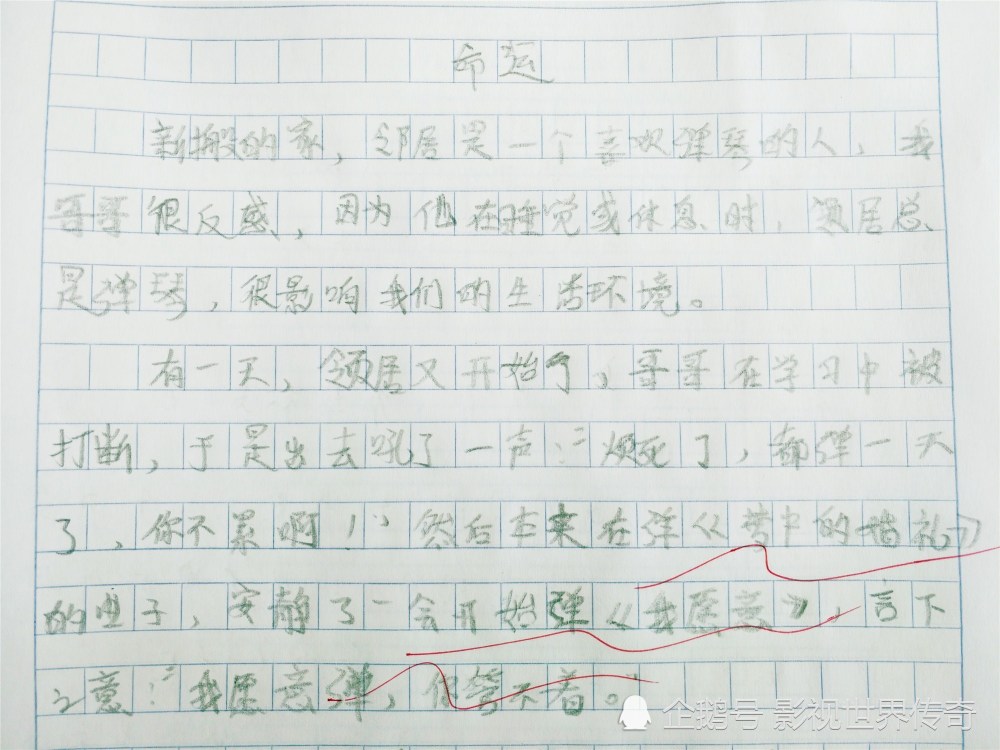 命运
新搬的家，邻居是一个喜欢弹琴的人，我
哥哥很反感，因为他在睡觉或休息时，领居总
是弹琴，很影响我们的生活环境。
有一天，领居又开始了，哥哥在学习中被
打断，于是出去吼了一声：“烦死了，都弹一天
了，你不累啊！”然后本来在弹《梦中的婚礼》
的曲子，安静了一会开始弹《我愿意》，言下
之意：“我愿意弹，你管不着。”
企鹅号 影视世界传奇